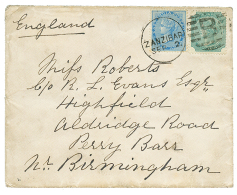 England
ZANZIBAR
SEP
Miss Roberts
C/o R. L. Evans Esqr
Highfield
Aldridge Road
Perry Barr
Nr. Birmingham